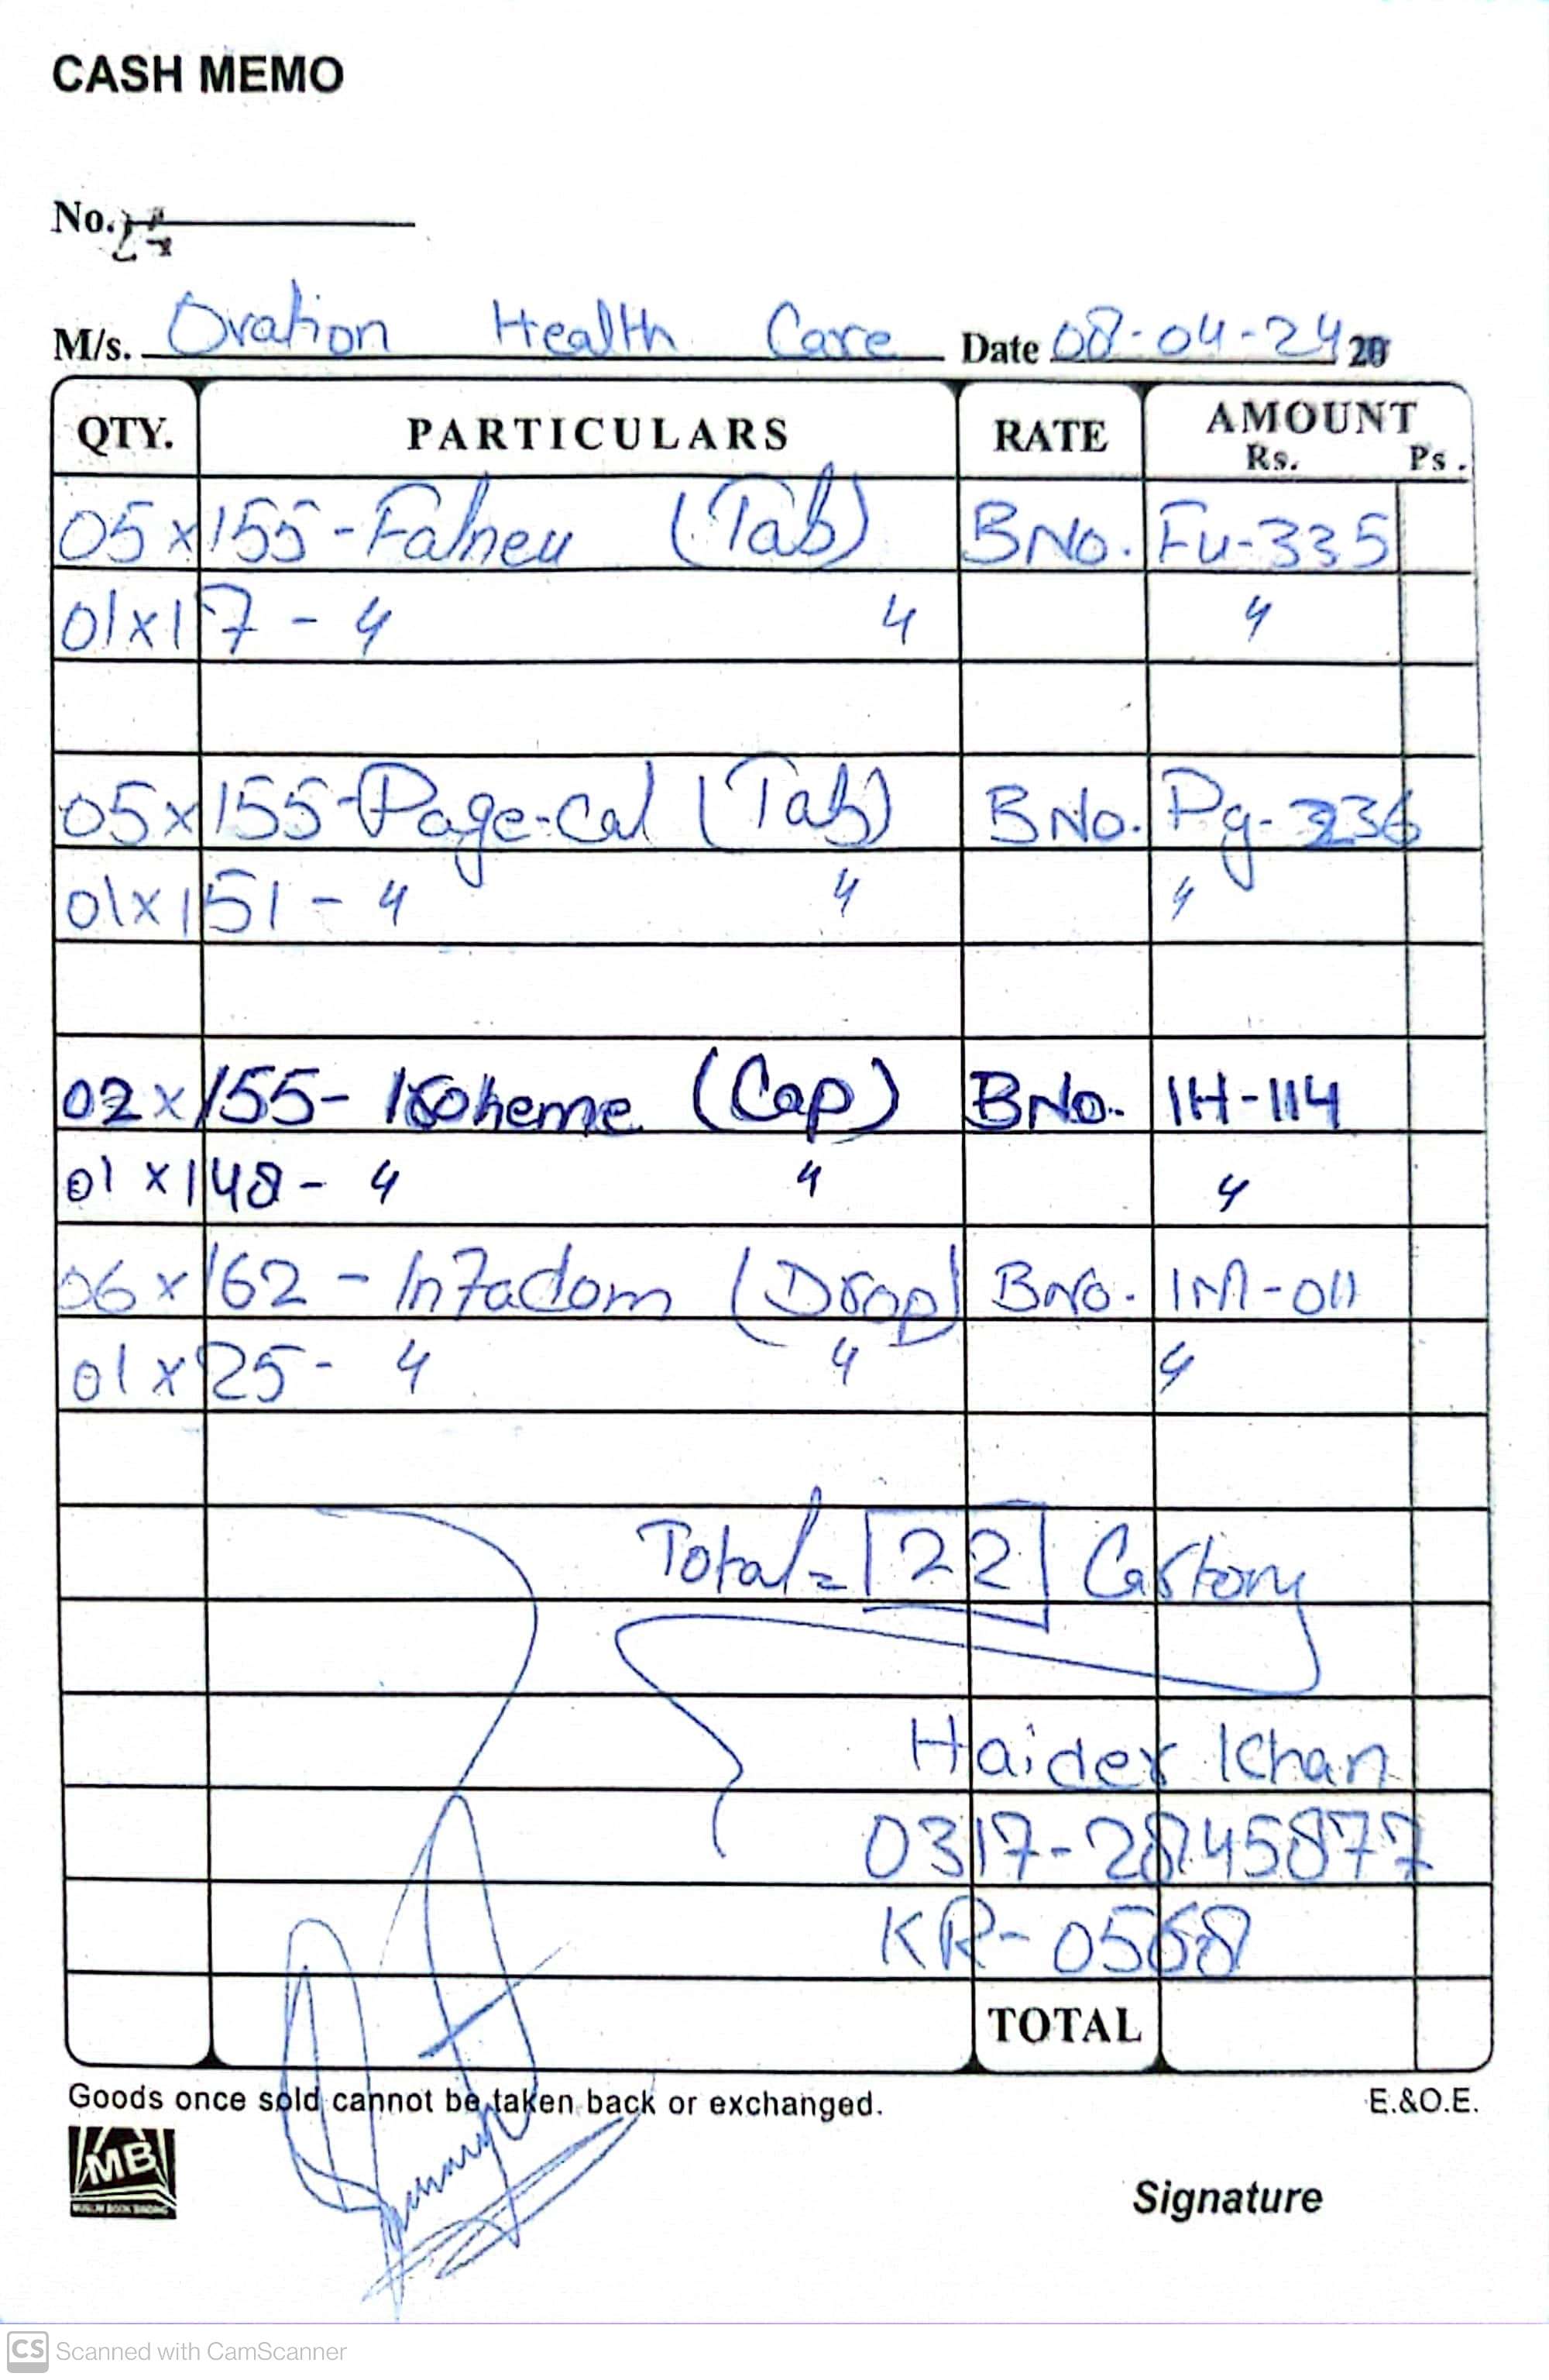 CASH MEMO
No.
M/s. Ovation Health Care Date 08-04-24 20
QTY. PARTICULARS RATE AMOUNT
Rs. Ps.
05 x 155 - Falneu (Tab) BNo. Fu-335
01 x 17 - 〃 〃 〃
05 x 155 - Page-Cal (Tab) BNo. Pg-236
01 x 151 - 〃 〃 〃
02 x 155 - Isoheme (Cap) BNo. IH-114
01 x 148 - 〃 〃 〃
06 x 162 - Infadom (Drop) BNo. IM-011
01 x 25 - 〃 〃 〃
Total = 22
Haider Khan
0317-2845877
KR-0568
TOTAL
Goods once sold cannot be taken back or exchanged. E.&O.E.
MB
MUSLIM BOOK BINDING
Signature
CS Scanned with CamScanner